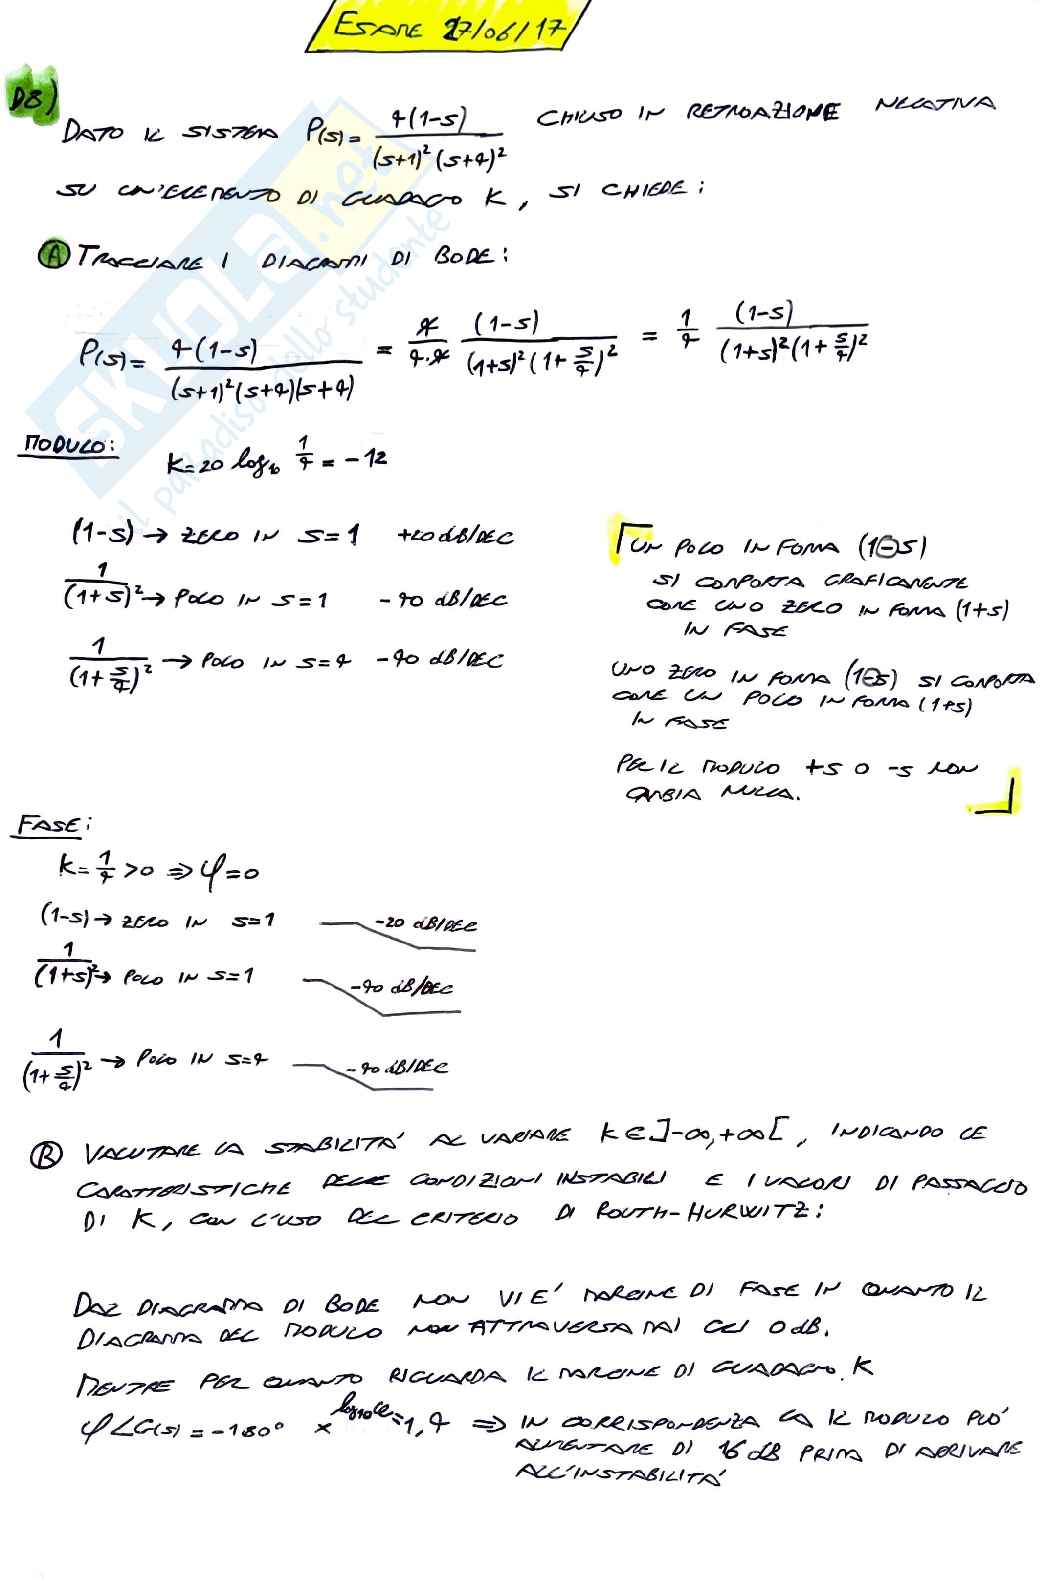 ESAME 27/06/17
D8)
DATO IL SISTEMA P(s) = 4(1-s) / (s+1)² (s+4)² CHIUSO IN RETROAZIONE NEGATIVA
SU UN'ELEMENTO DI GUADAGNO K, SI CHIEDE:
Ⓐ TRACCIARE I DIAGRAMMI DI BODE:
P(s) = 4(1-s) / (s+1)²(s+4)(s+4) = 4 / 4·4 (1-s) / (1+s)²(1+s/4)² = 1/4 (1-s) / (1+s)²(1+s/4)²
MODULO:
K = 20 log₁₀ 1/4 = -12
(1-s) → ZERO IN s=1 +20 dB/DEC
1/(1+s)² → POLO IN s=1 -40 dB/DEC
1/(1+s/4)² → POLO IN s=4 -40 dB/DEC
UN POLO IN FORMA (1-s)
SI COMPORTA GRAFICAMENTE
COME UNO ZERO IN FORMA (1+s)
IN FASE
UNO ZERO IN FORMA (1-s) SI COMPORTA
COME UN POLO IN FORMA (1+s)
IN FASE
PER IL MODULO +s O -s NON
CAMBIA NULLA.
FASE:
K = 1/4 >0 ⇒ φ=0
(1-s) → ZERO IN s=1 -20 dB/DEC
1/(1+s)² → POLO IN s=1 -40 dB/DEC
1/(1+s/4)² → POLO IN s=4 -40 dB/DEC
Ⓑ VALUTARE LA STABILITA' AL VARIARE K∈]-∞,+∞[, INDICANDO LE
CARATTERISTICHE DELLE CONDIZIONI INSTABILI E I VALORI DI PASSAGGIO
DI K, CON L'USO DEL CRITERIO DI ROUTH-HURWITZ:
DAL DIAGRAMMA DI BODE NON VI E' MARGINE DI FASE IN QUANTO IL
DIAGRAMMA DEL MODULO NON ATTRAVERSA MAI GLI 0 dB.
MENTRE PER QUANTO RIGUARDA IL MARGINE DI GUADAGNO K
φ∠G(s) = -180° x log₁₀ω = 1,4 ⇒ IN CORRISPONDENZA LA IL MODULO PUO'
AUMENTARE DI 16 dB PRIMA DI ARRIVARE
ALL'INSTABILITA'
SKUOLA.net
il paradiso dello studente